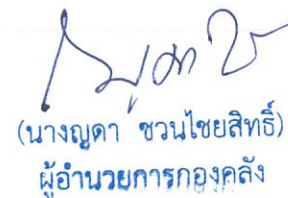 (นางญดา ชวนไชยสิทธิ์)
ผู้อำนวยการกองคลัง